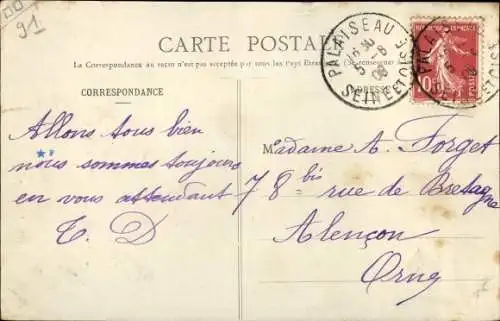 91
CARTE POSTALE
La Correspondance au recto n'est pas acceptée par tous les Pays Étrangers (Se renseigner)
CORRESPONDANCE
ADRESSE
PALAISEAU
SEINE ET OISE
10
POSTES
Allons tous bien
nous sommes toujours
en vous attendant
T. D
Madame A. Forget
78 bis rue de Bretagne
Alençon
Orne